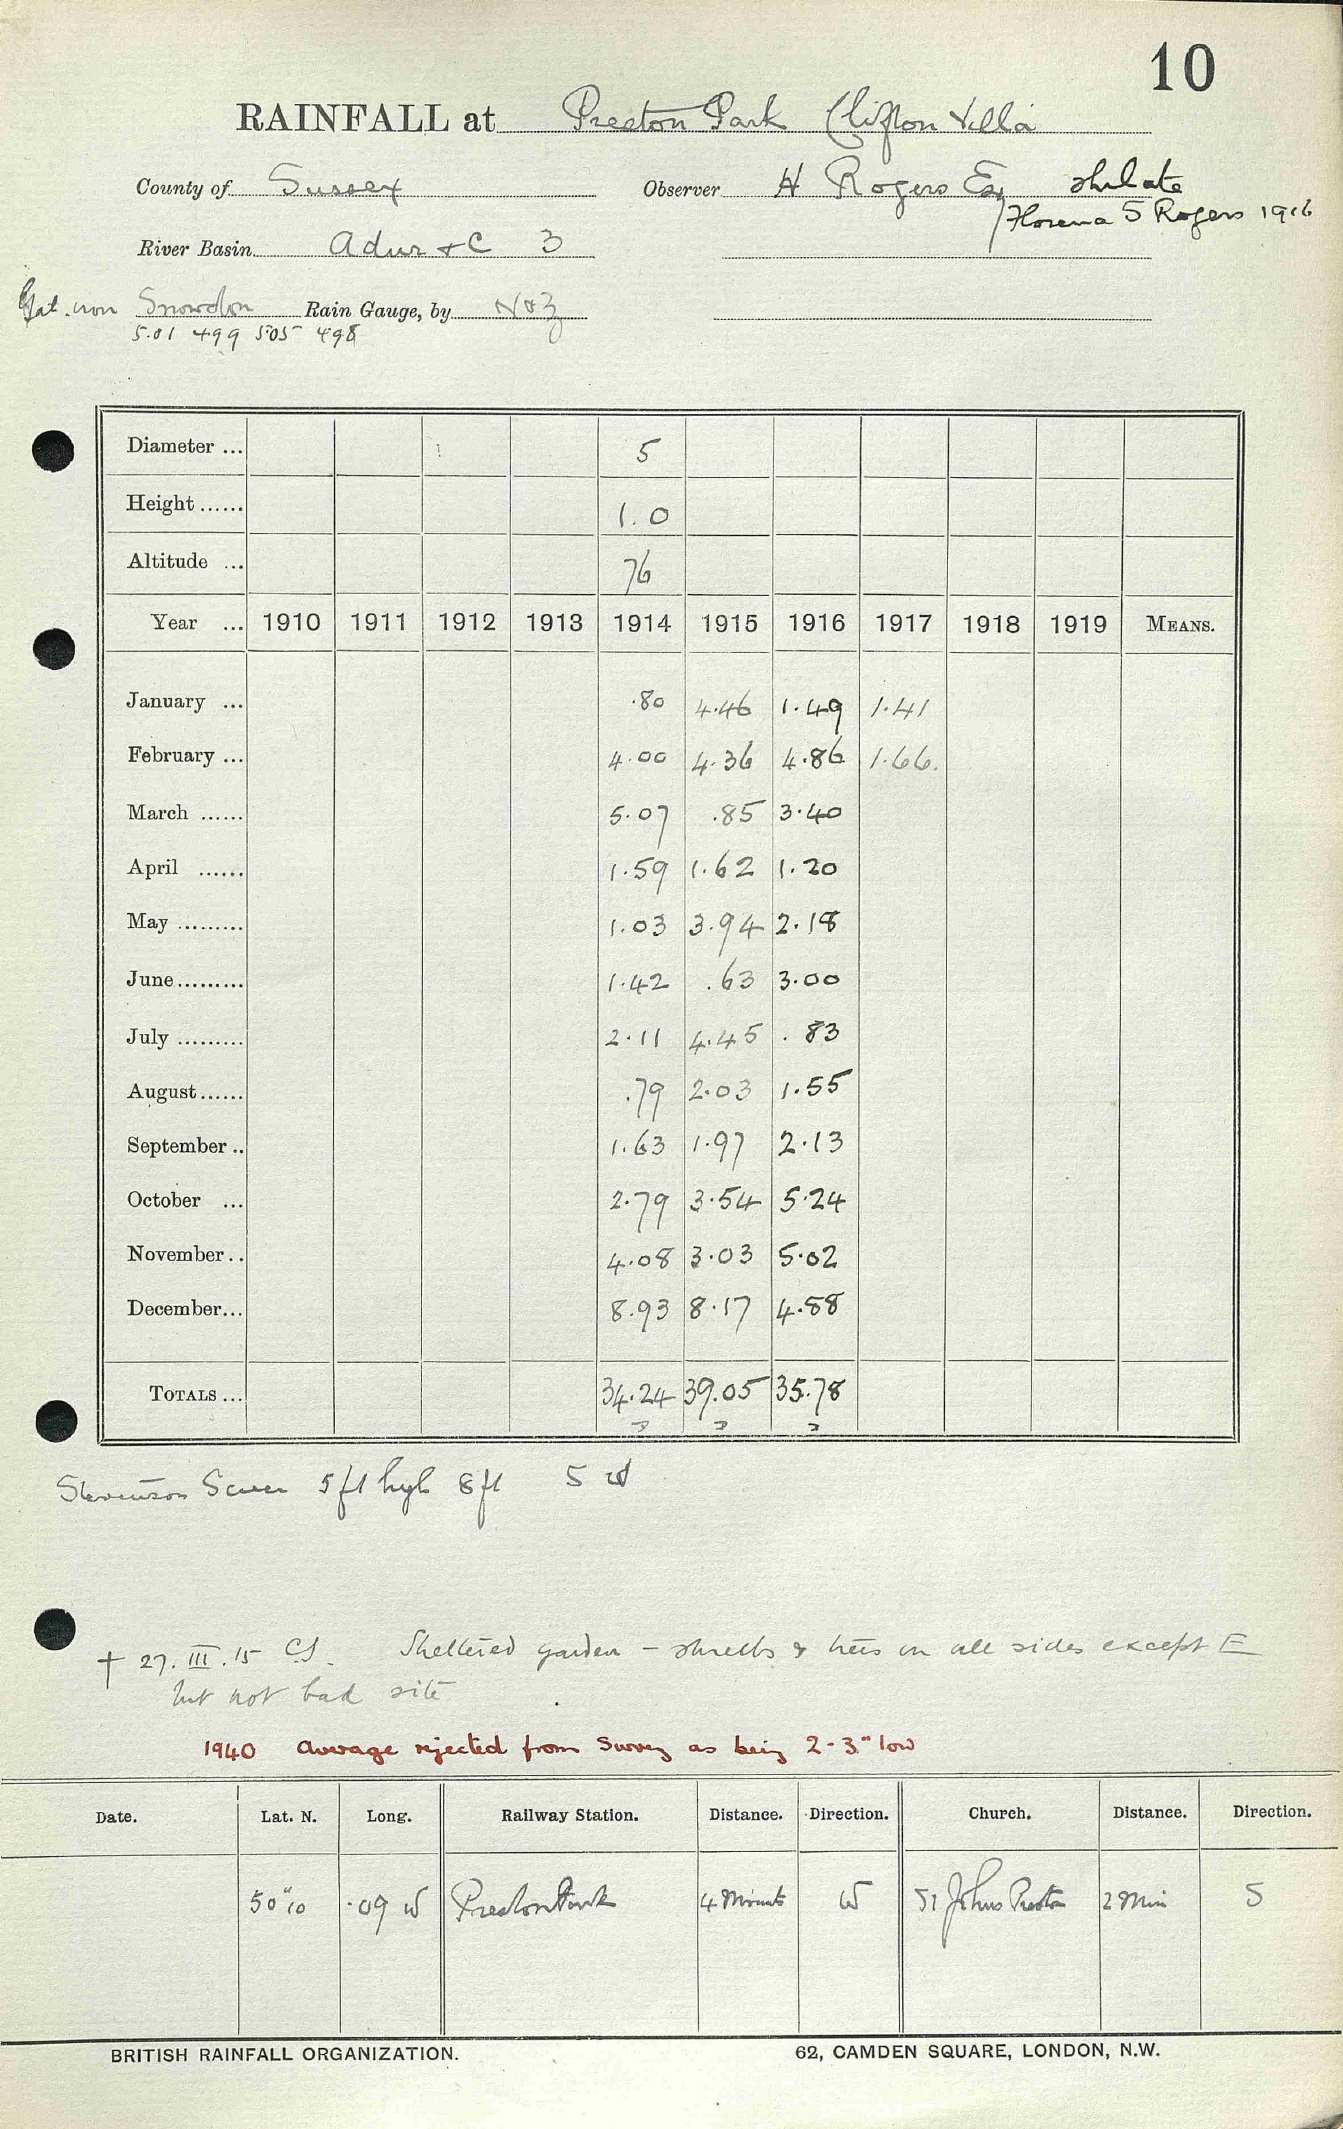 10
RAINFALL at Preston Park Clifton Villa
County of Sussex Observer H Rogers Esq
Florence S Rogers 1916
River Basin Adur &C 3
Gal. iron Snowdon Rain Gauge, by N&Z
5.01 499 5.05 498
Diameter ... 5
Height ...... 1.0
Altitude ... 76
Year ... 1910 1911 1912 1913 1914 1915 1916 1917 1918 1919 MEANS.
January ... .80 4.46 1.49 1.41
February ... 4.00 4.36 4.86 1.66.
March ...... 5.07 .85 3.40
April ...... 1.59 1.62 1.20
May ......... 1.03 3.94 2.18
June ......... 1.42 .63 3.00
July ......... 2.11 4.45 .83
August ...... .79 2.03 1.55
September .. 1.63 1.97 2.13
October ... 2.79 3.54 5.24
November .. 4.08 3.03 5.02
December ... 8.93 8.17 4.88
TOTALS ... 34.24 39.05 35.78
Stevenson Screen 5 ft high 8 ft S W
† 27. III. 15 CS. Sheltered garden - shrubs & trees on all sides except E
but not bad site
1940 Average rejected from Survey as being 2-3" low
Date. Lat. N. Long. Railway Station. Distance. Direction. Church. Distance. Direction.
50° 10 .09 W Preston Park 4 Minuts W St Johns Preston 2 Min S
BRITISH RAINFALL ORGANIZATION. 62, CAMDEN SQUARE, LONDON, N.W.